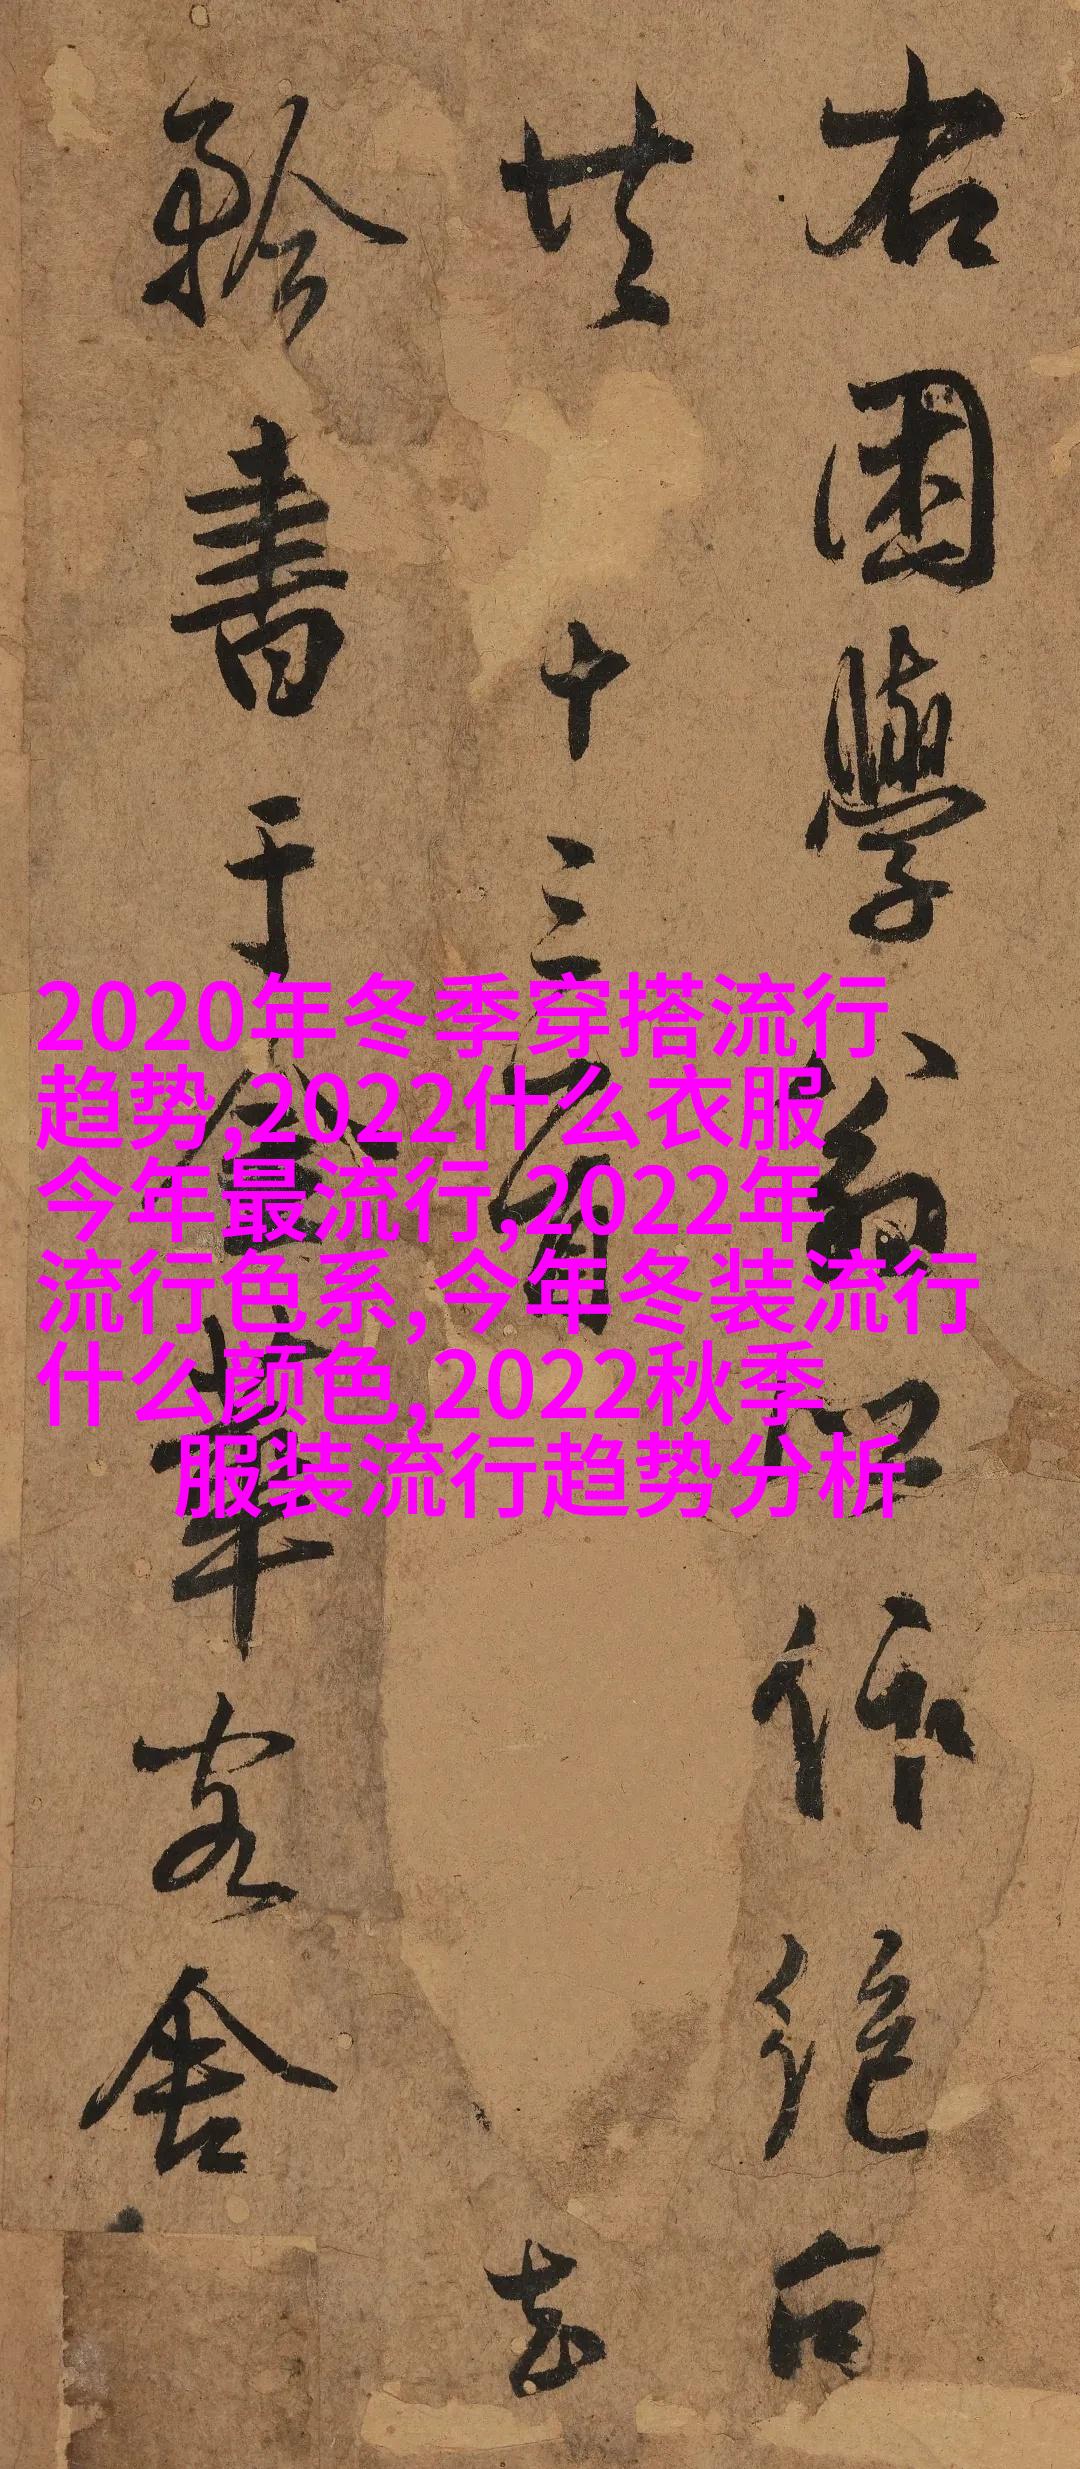 右困學翁所作絕句
共 十三首 去
矜書于金華客舍
2020年冬季穿搭流行
趋势,2022什么衣服
今年最流行,2022年
流行色系,今年冬装流行
什么颜色,2022秋季
服装流行趋势分析